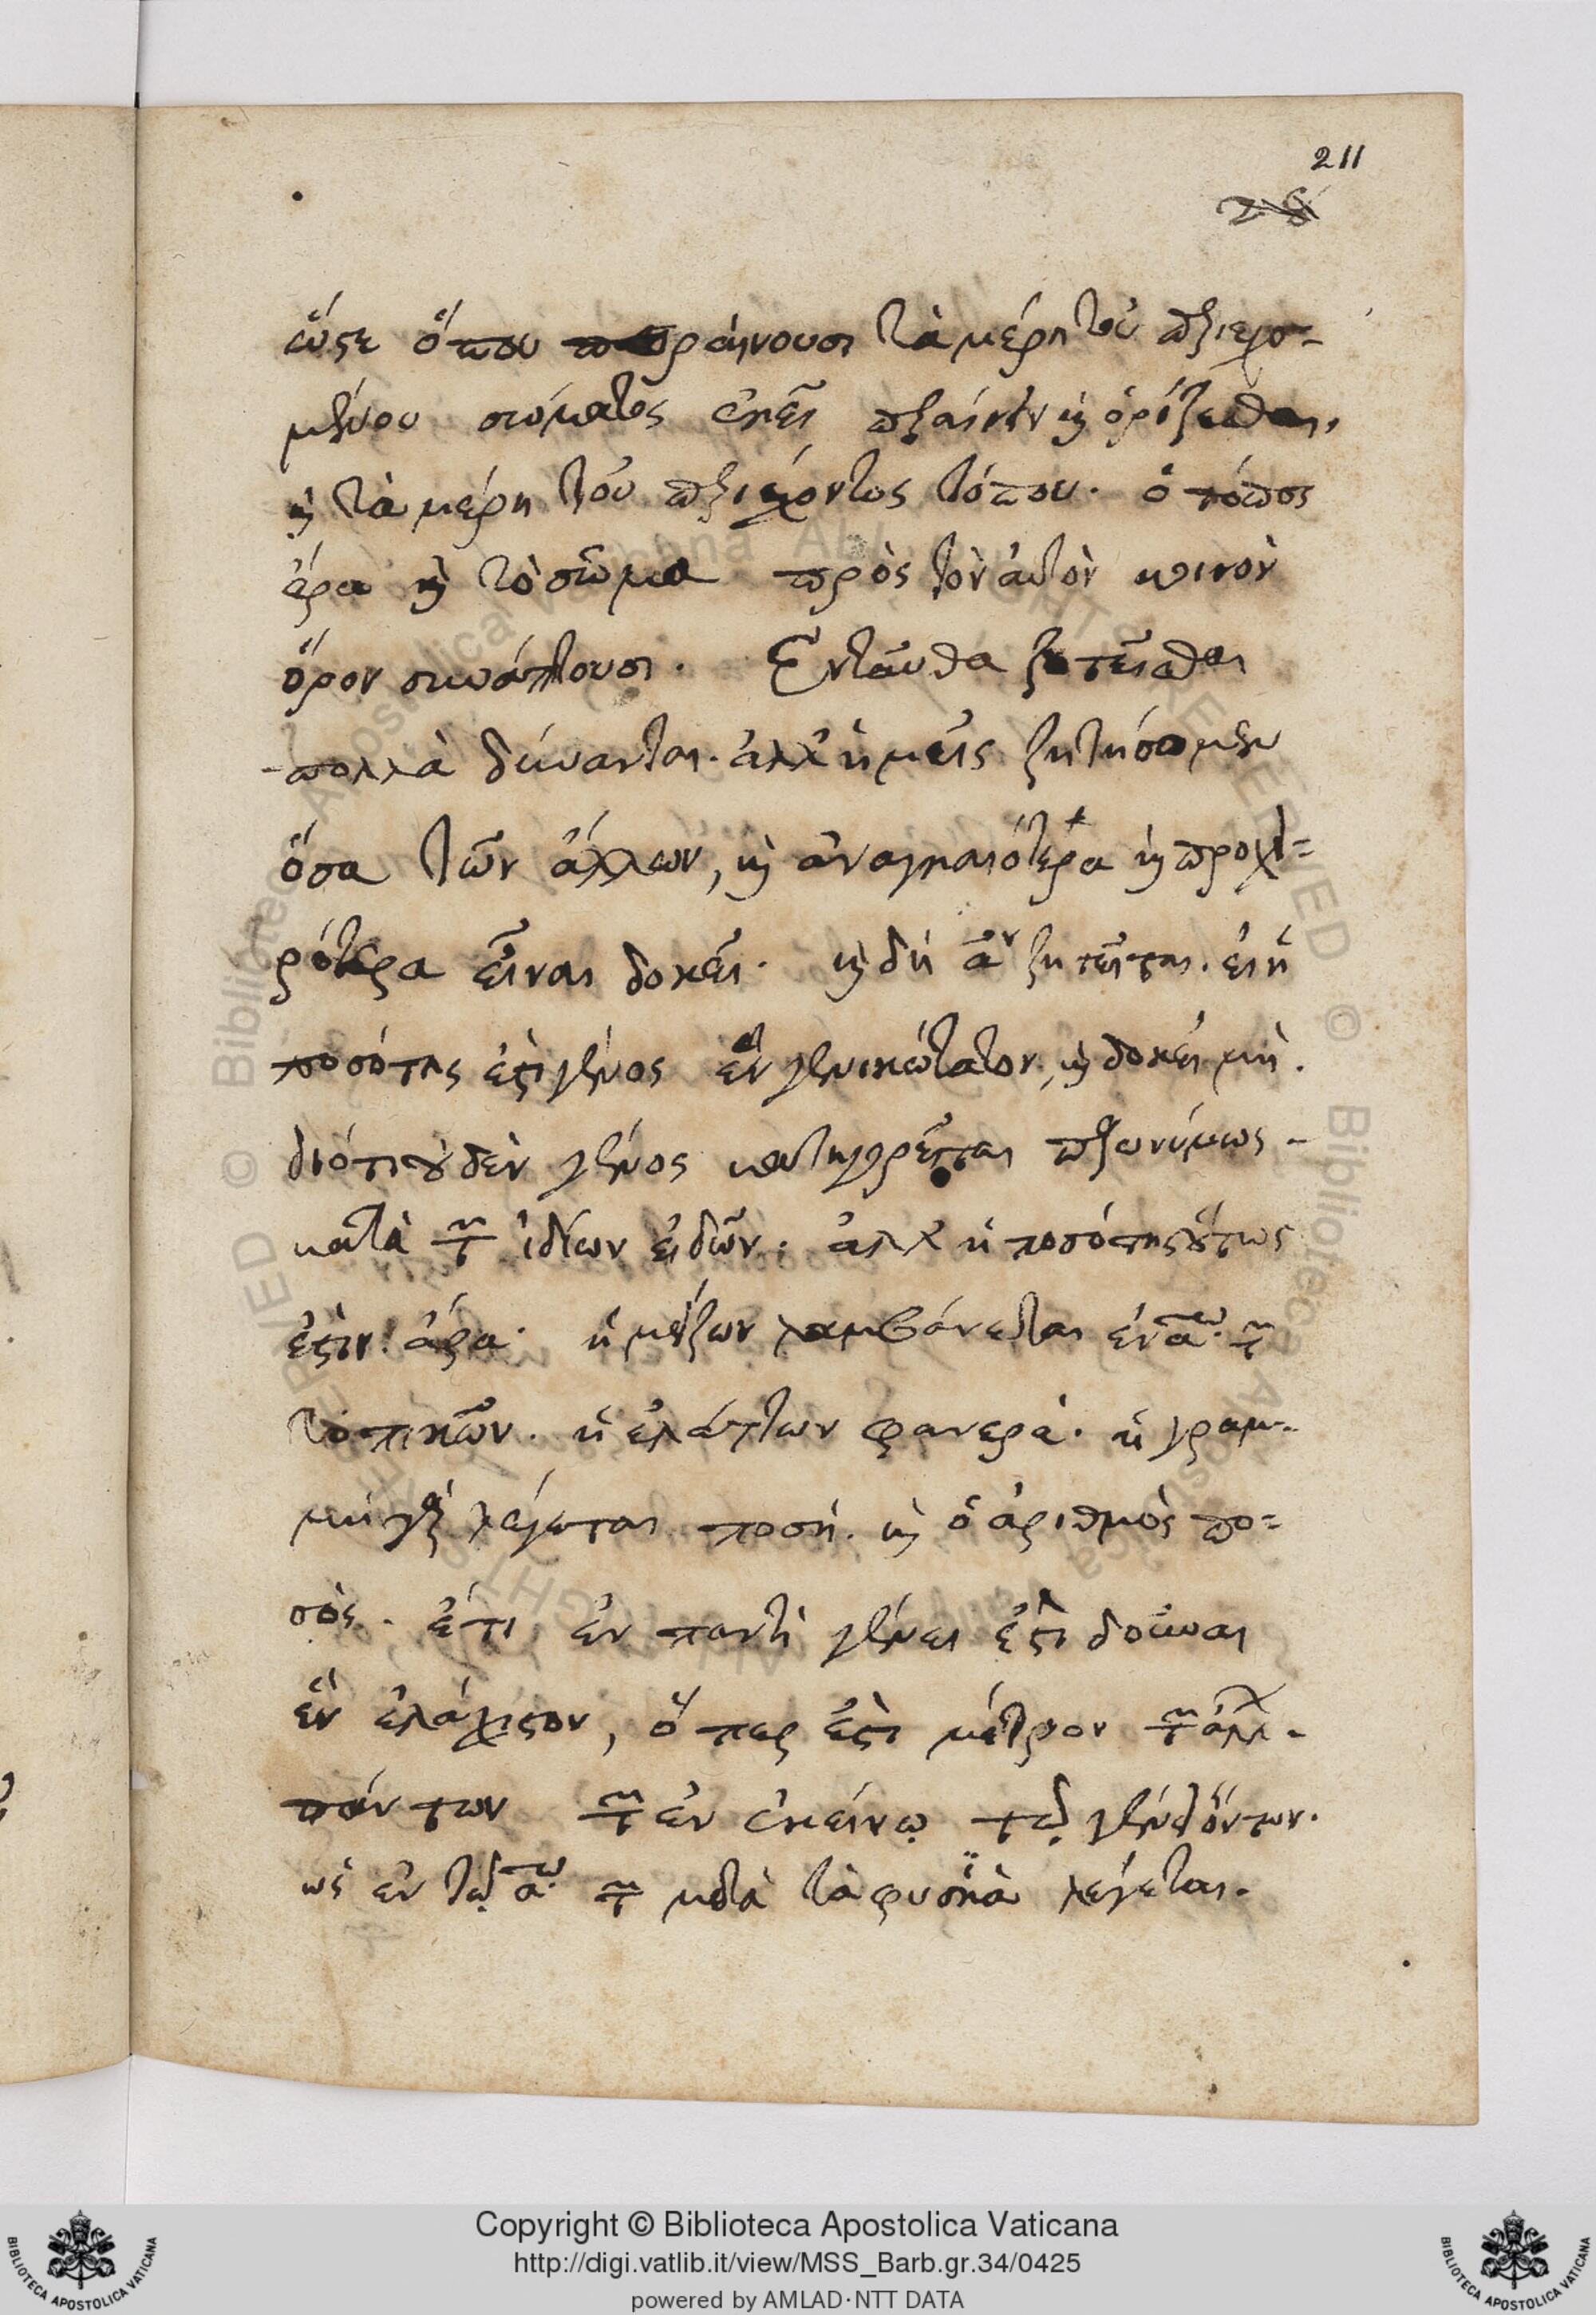 211
ὥστε ὅπου περαίνουσι τὰ μέρη τοῦ περιεχο-
μένου σώματος ἐκεῖ περαίνειν καὶ ὁρίζεσθαι,
καὶ τὰ μέρη τοῦ περιέχοντος τόπου. ὁ τόπος
ἄρα καὶ τὸ σῶμα πρὸς τὸν αὐτὸν κοινὸν
ὅρον συνάπτουσι. Ἐνταῦθα ζητεῖσθαι
πολλὰ δύνανται. ἀλλ' ἡμεῖς ζητήσομεν
ὅσα τῶν ἄλλων, καὶ ἀναγκαιότερα καὶ προχει-
ρότερα εἶναι δοκεῖ. καὶ δὴ αον ζητεῖται. εἰ ἡ
ποσότης ἐστὶ γένος ἓν γενικώτατον, καὶ δοκεῖ μή.
διότι οὐδὲν γένος κατηγορεῖται παρωνύμως
κατὰ τῶν ἰδίων εἰδῶν. ἀλλ' ἡ ποσότης οὕτως
ἐστίν. ἄρα. ἡ μείζων λαμβάνεται ἐν αῳ. τῶν
τοπικῶν. ἡ ἐλάττων φανερά. ἡ γραμ-
μὴ γὰρ λέγεται ποσή. καὶ ὁ ἀριθμὸς πο-
σός. ἔτι ἐν παντὶ γένει ἐστὶ δοῦναι
ἓν ἐλάχιστον, ὅπερ ἐστὶ μέτρον τῶν ἄλλ-
πάντων τῶν ἐν ἐκείνῳ τῷ γένει ὄντων.
ὡς ἐν τῷ αῳ τῶν μετὰ τὰ φυσικὰ λέγεται.
Copyright © Biblioteca Apostolica Vaticana
http://digi.vatlib.it/view/MSS_Barb.gr.34/0425
powered by AMLAD·NTT DATA